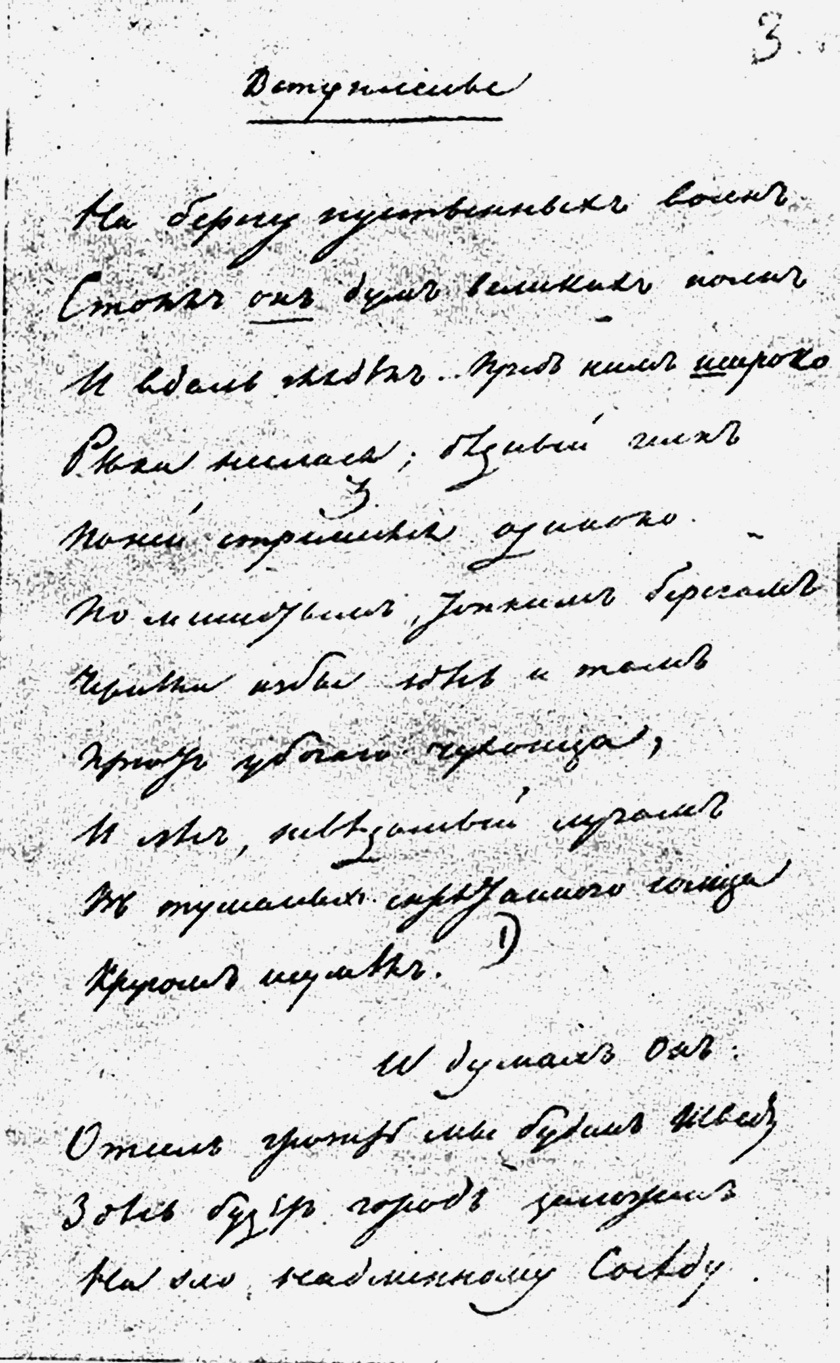 3.
Вступленье
На берегу пустынныхъ волнъ
Стоялъ онъ думъ великихъ полнъ
И вдаль глядѣлъ.. Предъ нимъ широко
Рѣка неслася; бѣдный челнъ
По ней стремился одиноко.
По мшистымъ, топкимъ берегамъ
Чернѣли избы здѣсь и тамъ
Пріютъ убогаго чухонца,
И лѣсъ, невѣдомый лучамъ
Въ туманѣ спрятаннаго солнца
Кругомъ шумѣлъ. 1)
И думалъ Онъ:
Отсель грозить мы будемъ Шведу
Здѣсь будетъ городъ заложенъ
На зло надменному Сосѣду.